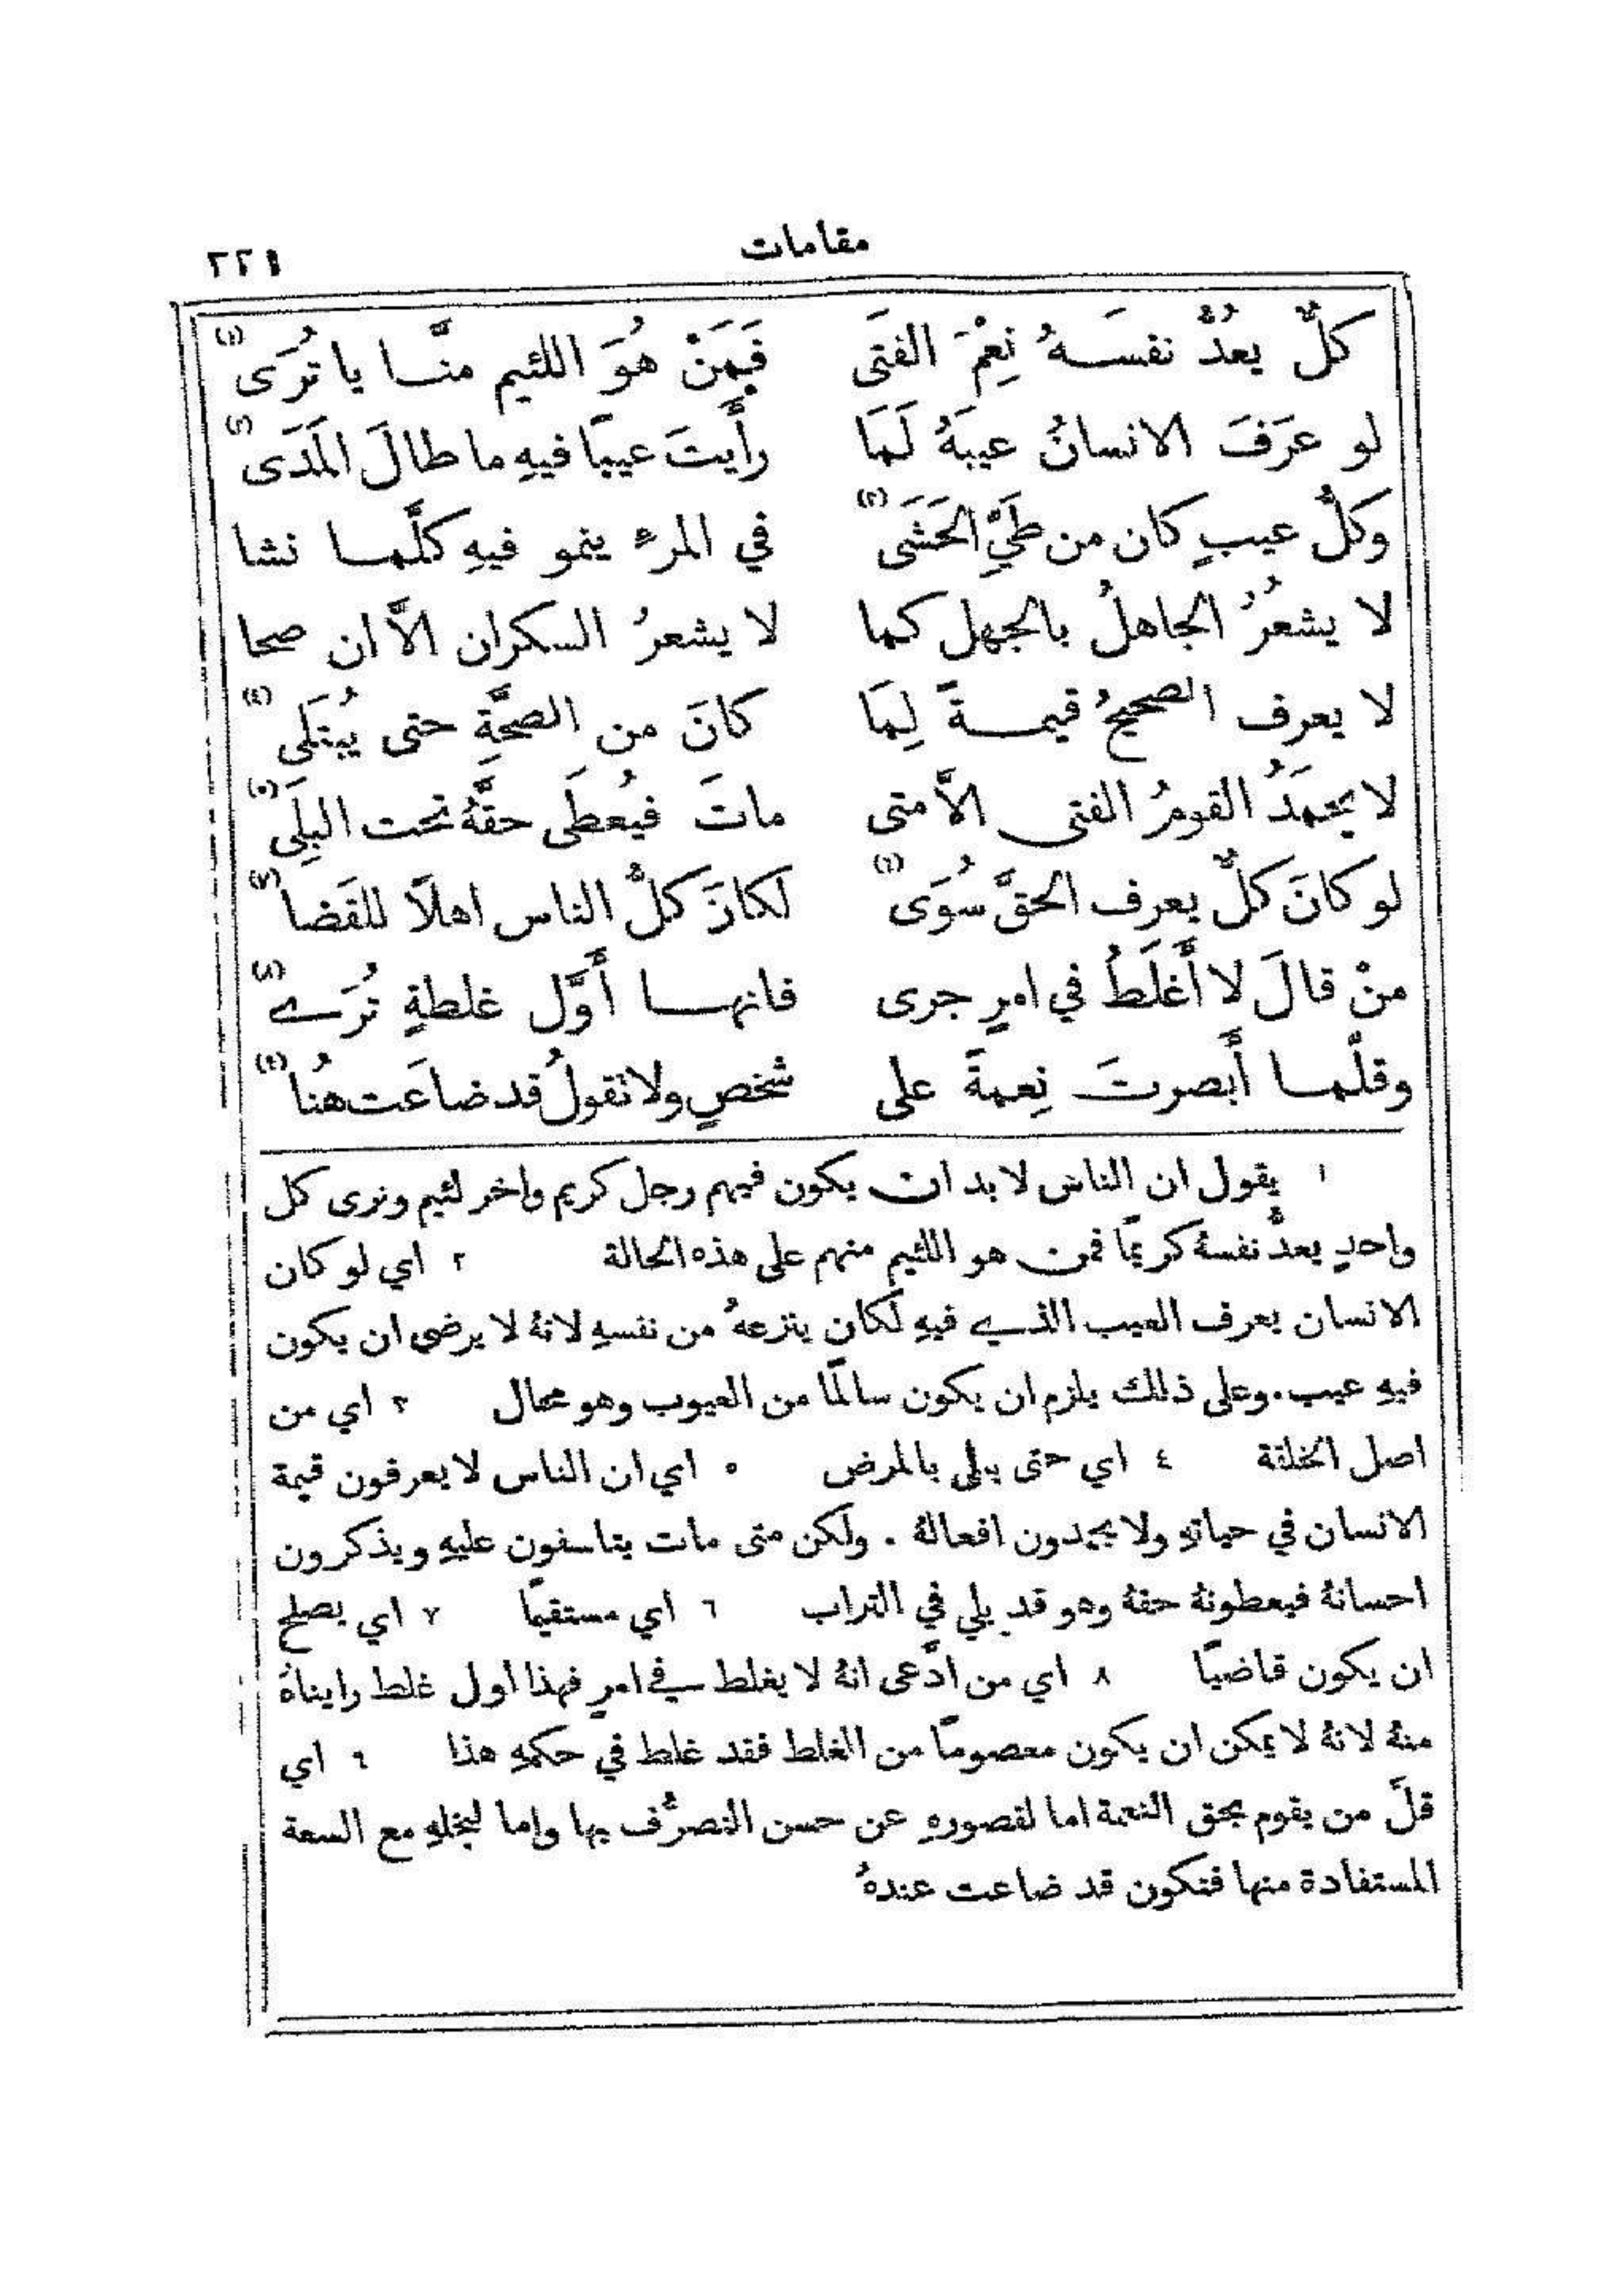 مقامات
٢٢١
كلٌّ يعدُّ نفسَهُ نِعْمَ الفتَى فَمَنْ هُوَ اللئيم منَّا يا تُرَى (١)
لو عرَفَ الانسانُ عيبَهُ لَمَا رأَيتَ عيبًا فيهِ ما طالَ المَدَى (٢)
وكلُّ عيبٍ كان من طَيِّ الحَشَى (٣) في المرءِ ينمو فيهِ كلَّما نشا
لا يشعُرُ الجاهلُ بالجهل كما لا يشعرُ السكران الَّا ان صحا
لا يعرف الصحيحُ قيمةً لِمَا كانَ من الصحَّةِ حتى يُبتَلَى (٤)
لا يحمَدُ القومُ الفتى الَّا متى ماتَ فيُعطَى حقَّهُ تحت البِلَى (٥)
لو كانَ كلٌّ يعرف الحقَّ سُوَى (٦) لكانَ كلُّ الناس اهلًا للقَضا (٧)
منْ قالَ لا أَغلَطُ في امرٍ جرى فانها أَوَّل غلطةٍ تُرَى (٨)
وقلَّما أَبصرتَ نِعمةً على شخصٍ ولا نقولُ قد ضاعَت هنُا (٩)
١ يقول ان الناس لا بد ان يكون فيهم رجل كريم واخر لئيم ونرى كل
واحدٍ يعدُّ نفسهُ كريمًا فمن هو اللئيم منهم على هذه الحالة ٢ اي لو كان
الانسان يعرف العيب الذي فيهِ لكان ينزعهُ من نفسهِ لانهُ لا يرضى ان يكون
فيهِ عيب. وعلى ذلك يلزم ان يكون سالمًا من العيوب وهو محال ٣ اي من
اصل الخلقة ٤ اي حتى يبلى بالمرض ٥ اي ان الناس لا يعرفون قيمة
الانسان في حياتهِ ولا يحمدون افعالهُ. ولكن متى مات يتاسفون عليهِ ويذكرون
احسانهُ فيعطونهُ حقهُ وهو قد بلي في التراب ٦ اي مستقيمًا ٧ اي يصلح
ان يكون قاضيًا ٨ اي من ادَّعى انهُ لا يغلط في امرٍ فهذا اول غلط رايناهُ
منهُ لانهُ لا يمكن ان يكون معصومًا من الغلط فقد غلط في حكمهِ هذا ٩ اي
قلَّ من يقوم بحق النعمة اما لقصورهِ عن حسن التصرُّف بها واما لبخلهِ مع السعة
المستفادة منها فتكون قد ضاعت عندهُ